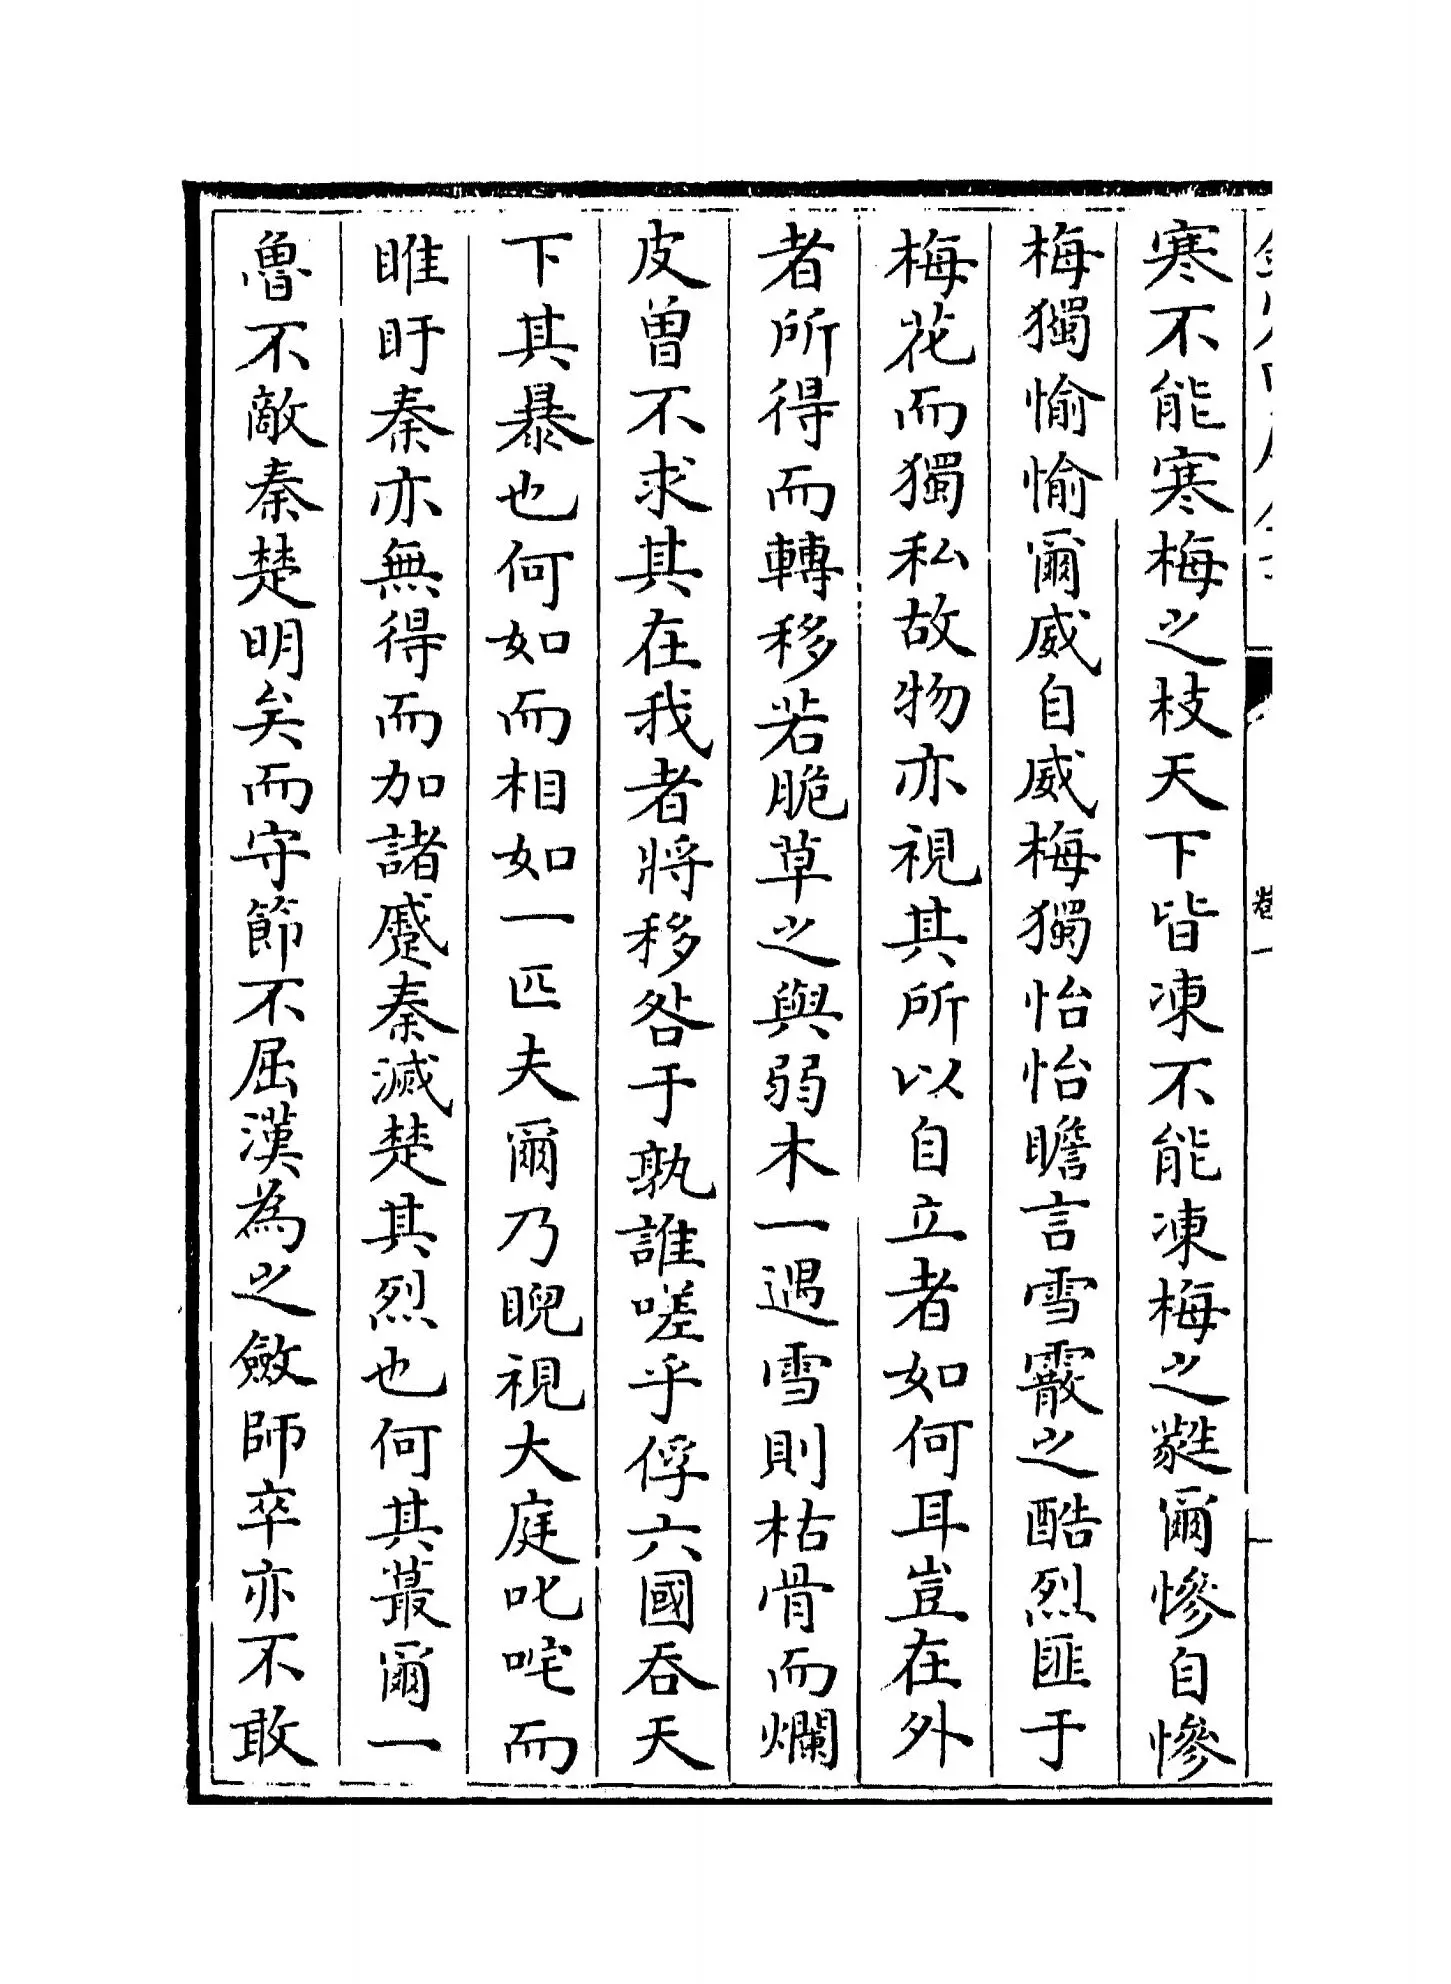 寒不能寒梅之枝天下皆凍不能凍梅之蕤爾慘自慘
梅獨愉愉爾威自威梅獨怡怡瞻言雪霰之酷烈匪于
梅花而獨私故物亦視其所以自立者如何耳豈在外
者所得而轉移若脆草之與弱木一遇雪則枯骨而爛
皮曾不求其在我者將移咎于孰誰嗟乎俘六國吞天
下其暴也何如而相如一匹夫爾乃睨視大庭叱咤而
睢盱秦亦無得而加諸蹙秦滅楚其烈也何其蕞爾一
魯不敵秦楚明矣而守節不屈漢為之斂師卒亦不敢
卷一